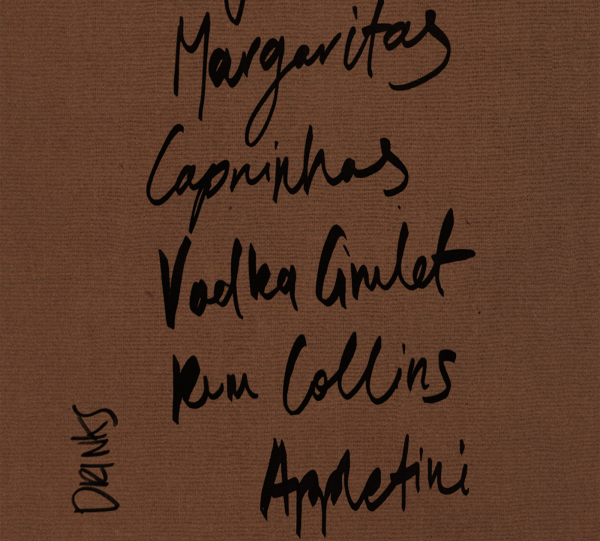 Margaritas
Caprinhas
Vodka Gimlet
Rum Collins
Appletini
DRINKS